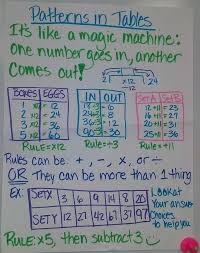 Patterns in Tables
It's like a magic machine:
one number goes in, another
comes out! 2 x12 24
BOXES EGGS IN OUT Set A Set B
1 x12 = 12 18÷3=6 12+11=23
2 x12 = 24 24÷3=8 16+11=27
3 x12 = 36 36÷3=12 20+11=31
5 x12 = 60 90÷3=30 25+11=36
Rule=x12 Rule=÷3 Rule=+11
Rules can be: +, -, x, or ÷
OR They can be more than 1 thing
EX: SETX 3 6 9 14 8 20
SETY 12 27 42 67 37 97
Look at
your answer
choices
to help you
Rule: x5, then subtract 3